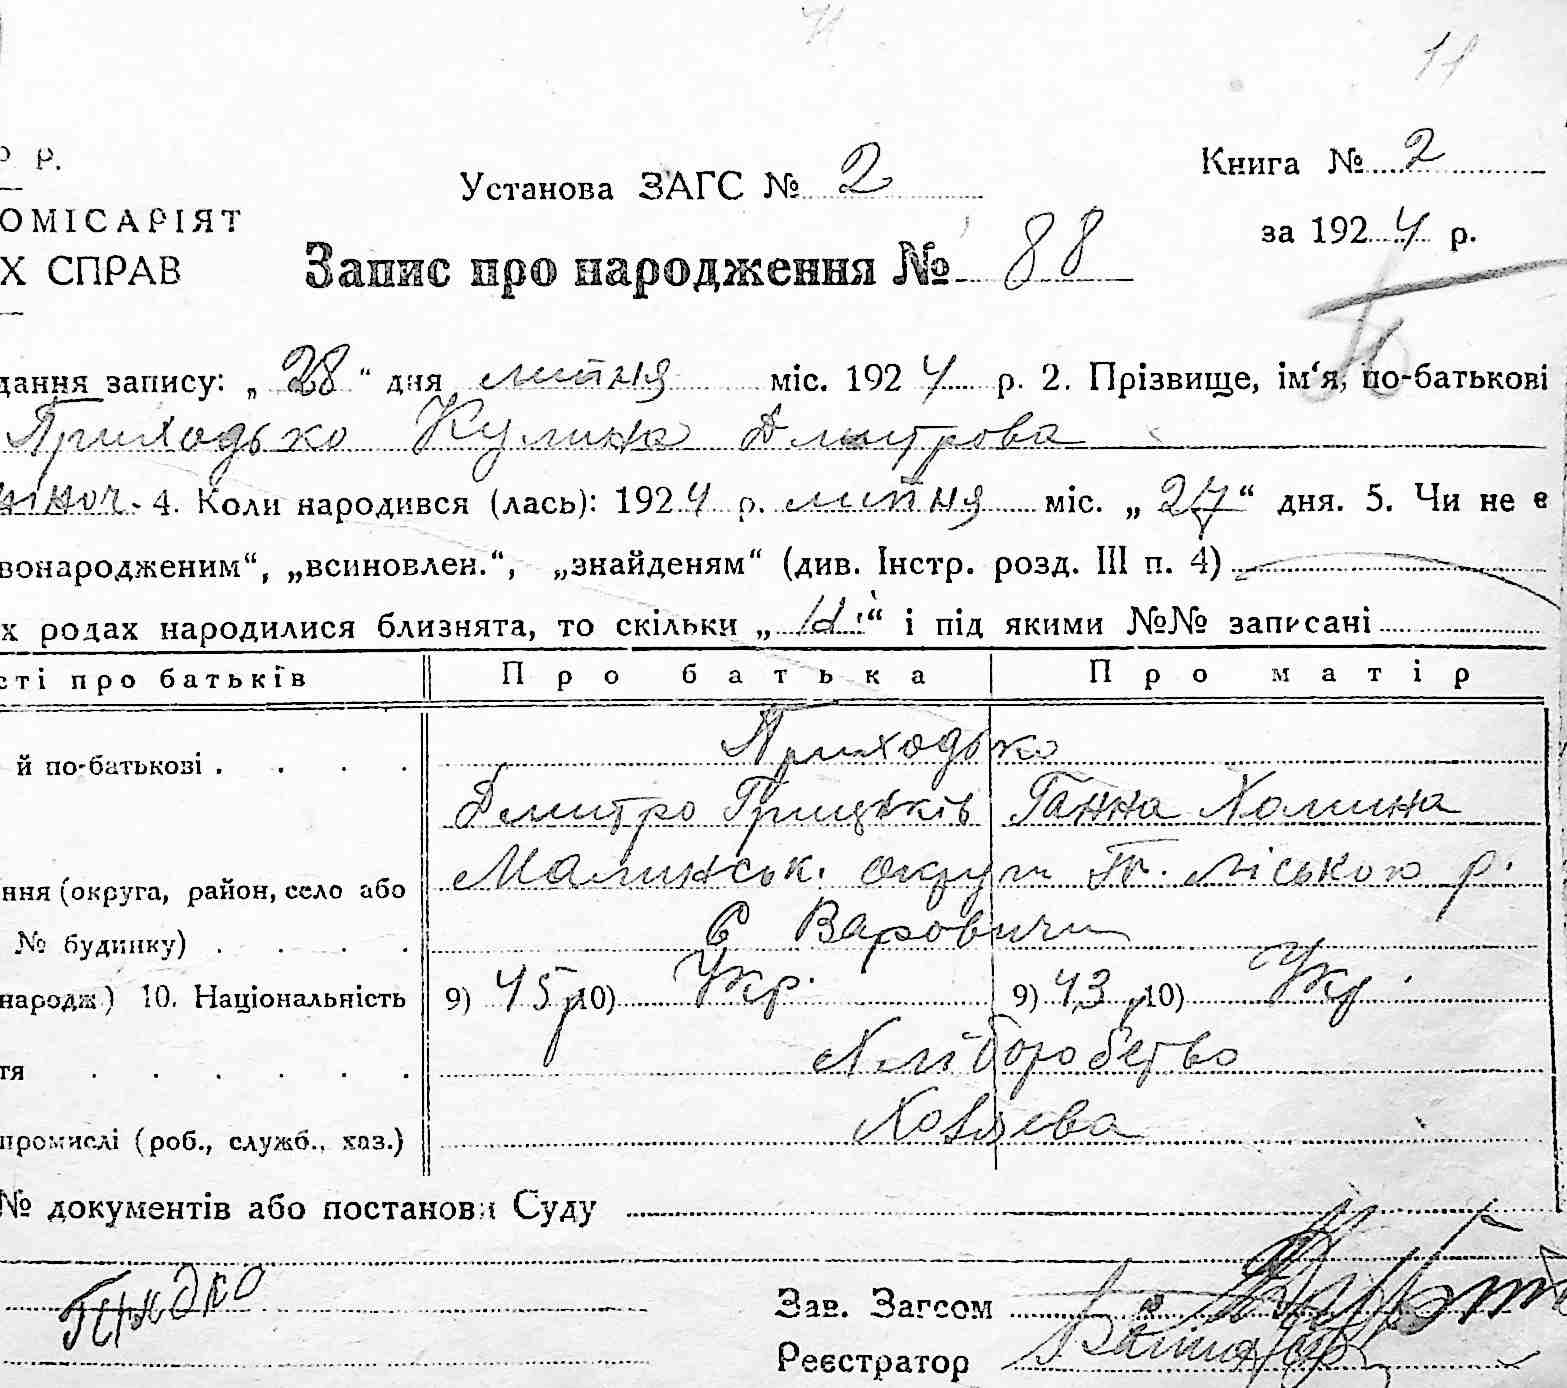 11
Р Р.
Книга № 2
Установа ЗАГС № 2
ОМІСАРІЯТ
за 1924 р.
Х СПРАВ
Запис про народження № 88
дання запису: „ 28 “ дня липня міс. 1924 р. 2. Прізвище, ім‘я, по-батькові
Приходько Кулина Дмитрова
жіноч. 4. Коли народився (лась): 1924 р. липня міс. „ 27 “ дня. 5. Чи не є
вонародженим“, „всиновлен.“, „знайденям“ (див. Інстр. розд. III п. 4)
х родах народилися близнята, то скільки „ “ і під якими №№ записані
сті про батьків Про батька Про матір
Приходько
й по-батькові . . . .
Дмитро Грицьків Ганна Хомина
Малинськ. округи міського р.
ння (округа, район, село або
С Варовичи
№ будинку) . . . .
народж.) 10. Національність 9) 45 р 10) Укр. 9) 43 р 10) Укр.
Хліборобство
тя . . . . . .
Хозяева
промислі (роб., служб., хаз.)
№ документів або постанови Суду
Зав. Загсом
Реєстратор